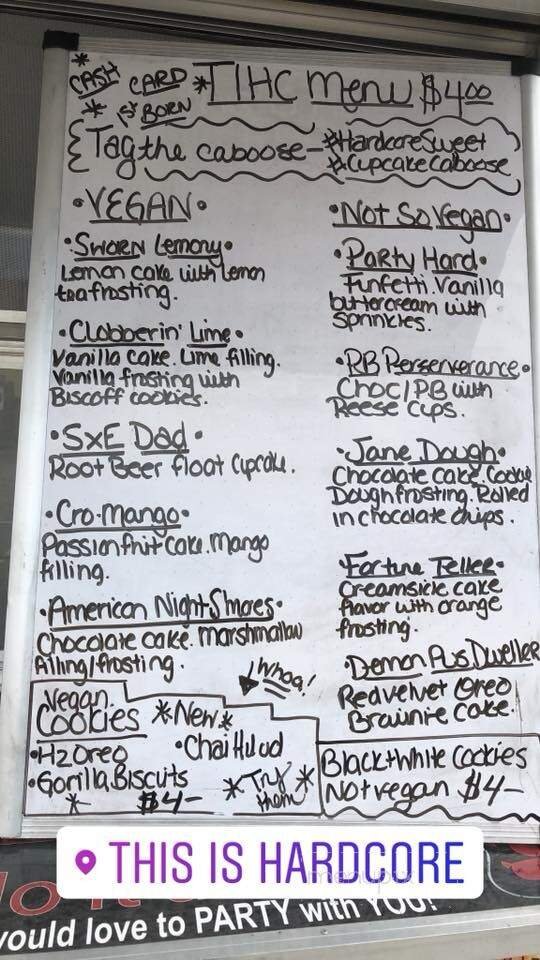 * CASH CARD * TIHC Menu $4.00
* 1st BORN
Tag the caboose - #HardcoreSweet
#CupcakeCaboose
• VEGAN •
• Sworn Lemony •
Lemon cake with Lemon
tea frosting.
• Clobberin' Lime •
Vanilla Cake. Lime filling.
Vanilla frosting with
Biscoff cookies.
• SxE Dad •
Root Beer float Cupcake.
• Cro-Mango •
Passionfruit Cake. Mango
filling.
• American Night S'mores •
Chocolate cake. marshmallow
filling/frosting.
Whoa!
Vegan
Cookies *New*
• H2Oreo • Chai Hulud
• Gorilla Biscuits *Try*
* $4- them
• Not So Vegan •
• Party Hard •
Funfetti. Vanilla
buttercream with
Sprinkles.
• RB Perserverance •
Choc/PB with
Reese Cups.
• Jane Dough •
Chocolate cake. Cookie
Dough frosting. Rolled
in chocolate chips.
• Fortune Teller •
Creamsicle cake
flavor with orange
frosting.
• Demon Pus Dweller
Red velvet Oreo
Brownie Cake.
Black + White Cookies
Not vegan $4-
THIS IS HARDCORE
would love to PARTY with YOU!